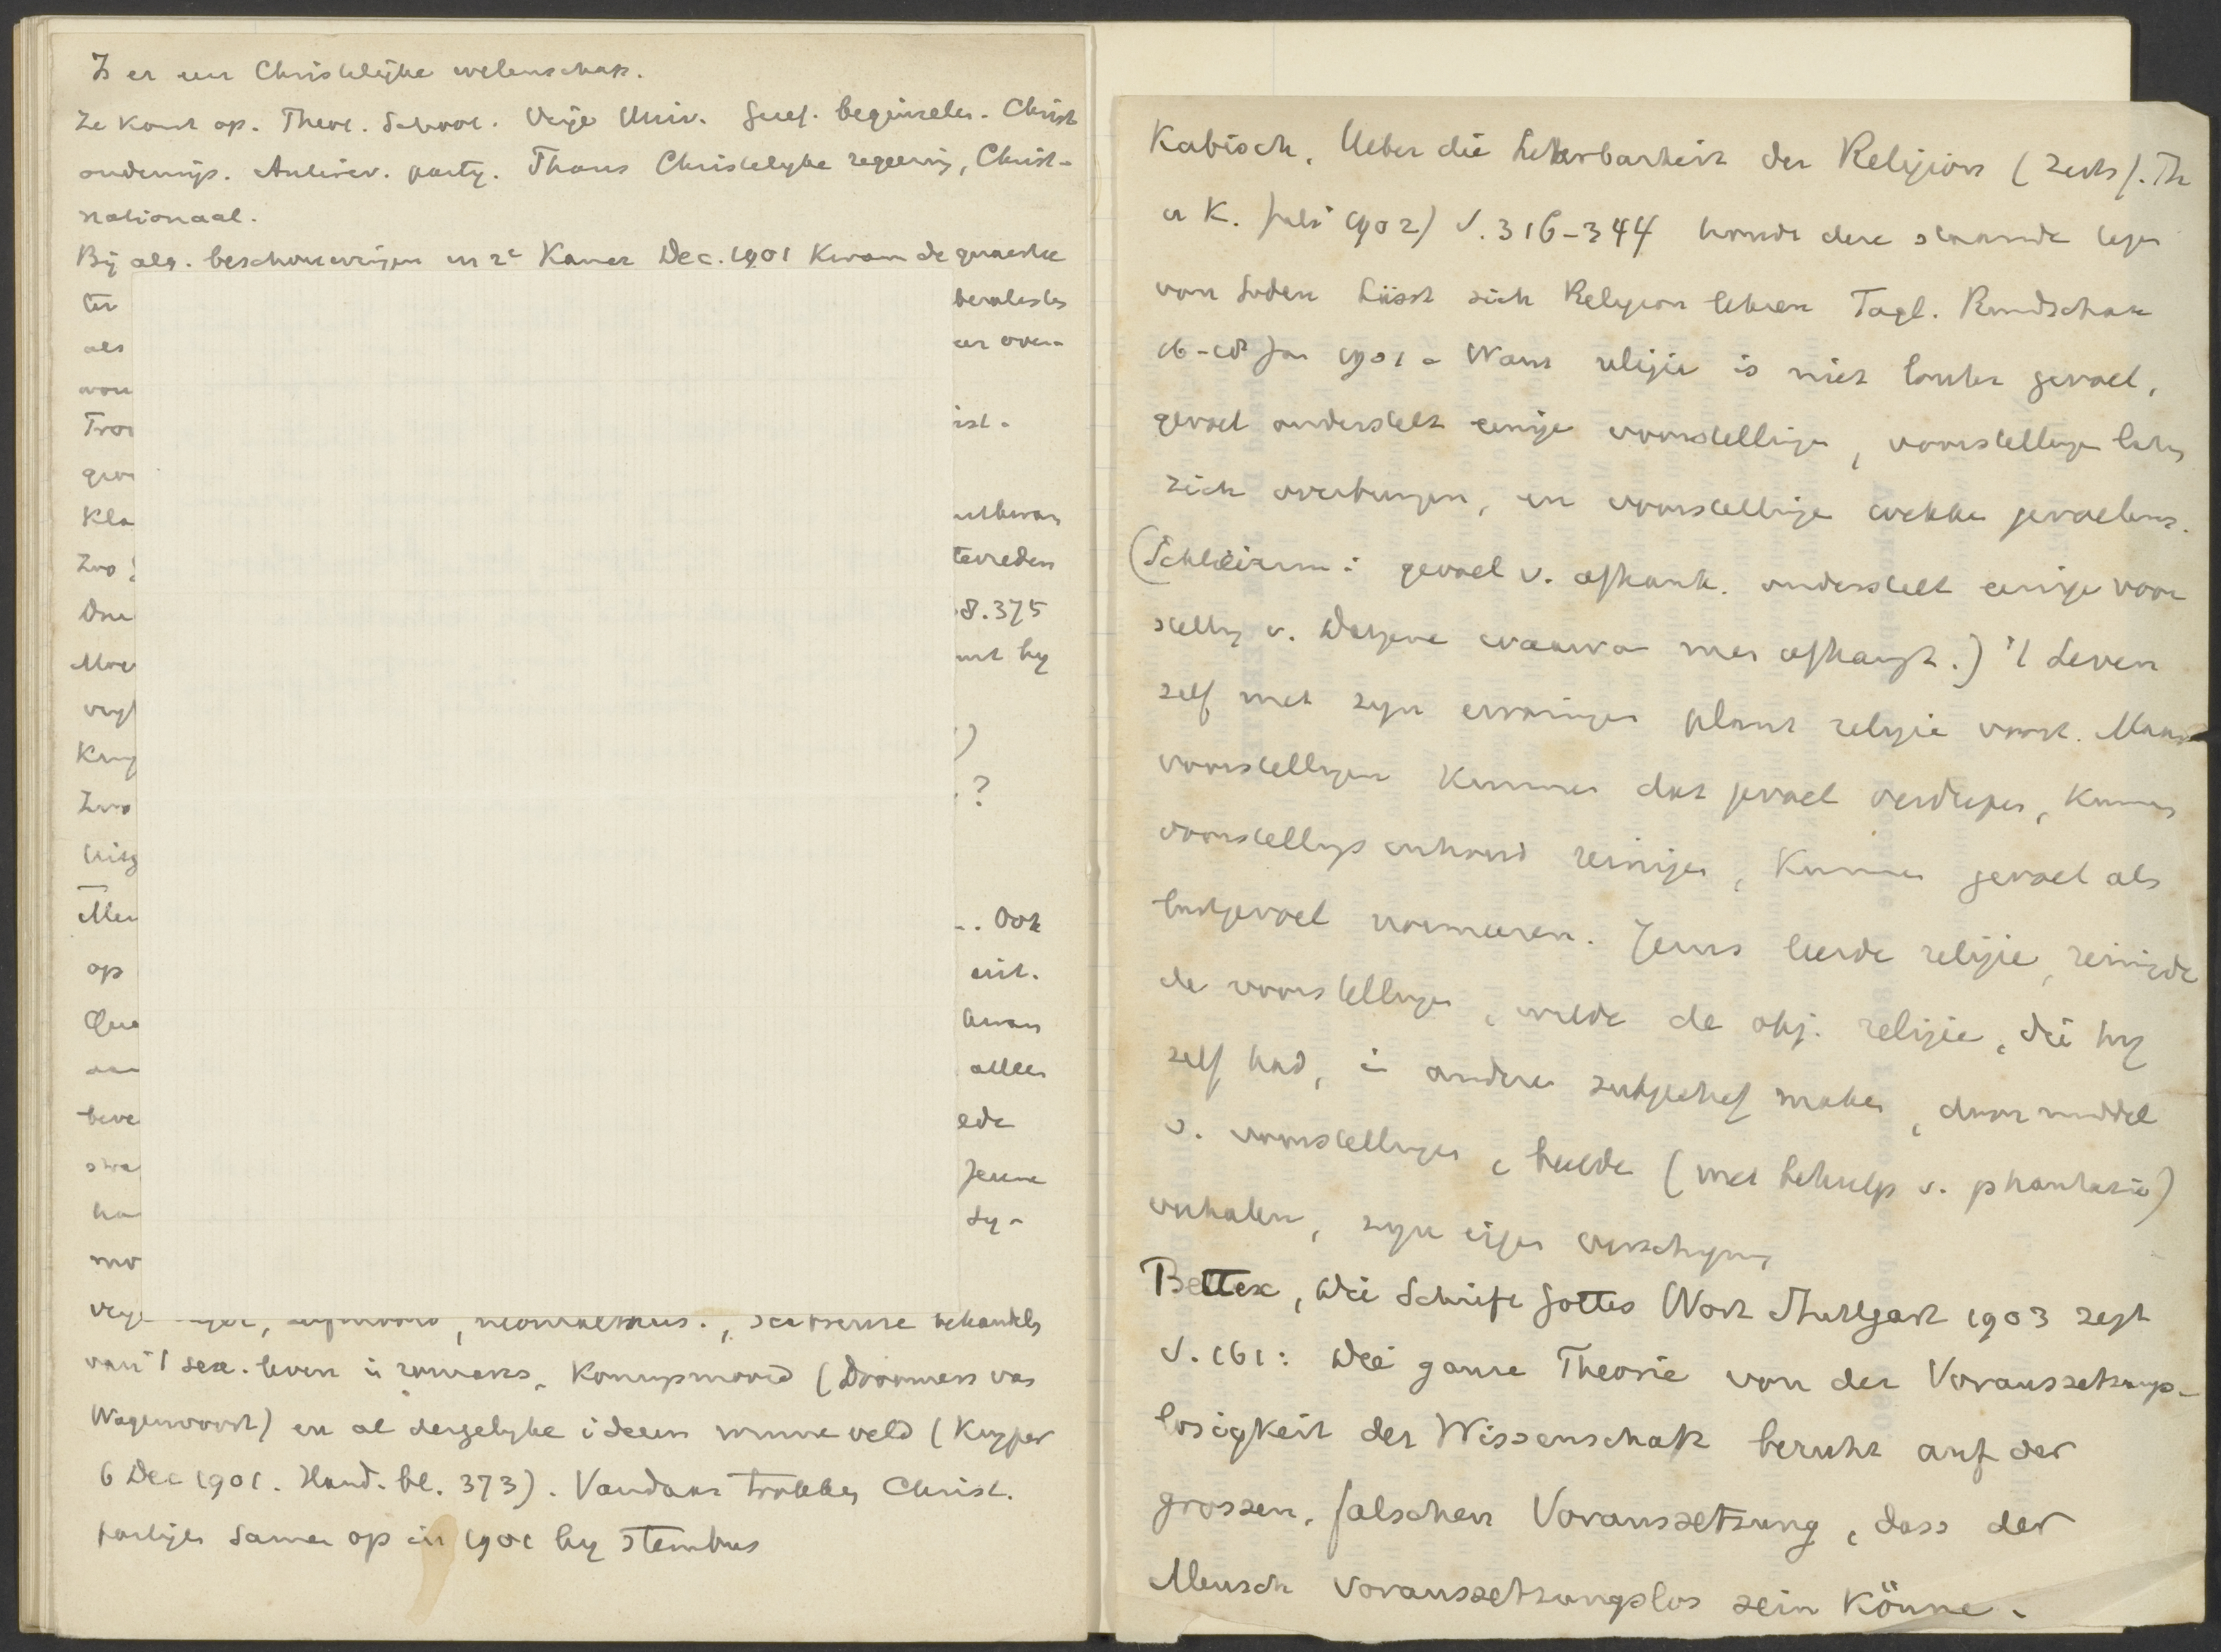 Is er een Christelijke wetenschap.
Ze komt op. Theol. School. Vrije Univ. Geref. beginselen. Christ
onderwijs. Antirev. partij. Thans Christelyke regeering, Christ-
nationaal.
Bij alg. beschouwingen in 2e Kamer Dec. 1901 kwam de quaestie
ter
als er over-
ist.
Kla
Zoo tevreden
8.375
hy
)
Zoo ?
Men Ook
op uit.
alleen
ede
Jesune
mo
behandelt
van 't sex. leven in romans, Koningsmoord (Doormers van
Wagenvoort) en al dergelyke ideeen winne veld (Kuyper
6 Dec 1901. Hand. bl. 373). Vandaar trokken Christ.
partijen samen op in 1901 by stembus
Kabisch, Ueber die Lehrbarkeit der Religion (Zeits f. Th
u K. Juli 1902) S. 316-344 houdt deze staande tegen
von Soden Lässt sich Religion lehren Tägl. Rundschau
16-18 Jan 1901. Want religie is niet louter gevoel,
gevoel onderstelt eenige voorstellingen, voorstellingen laten
zich overbrengen, en voorstellingen wekken gevoelens.
(Schleierm: gevoel v. afhank. onderstelt eenige voor
stelling v. datgene waarvan men afhangt.) 't Leven
zelf met zyn ervaringen plant religie voort. Maar
voorstellingen kunnen dat gevoel verdiepen, kunnen
voorstellings inhoud reinigen, kunnen gevoel als
lustgevoel normeeren. Jezus leerde religie, reinigde
de voorstellingen, wilde de obj. religie, die hy
zelf had, in anderen subjectief maken, door middel
v. voorstellingen, beelde (met behulp v. phantasie)
verhalen, zyn eigen verschyning
Bettex, Die Schrift Gottes Wort Stuttgart 1903 zegt
S. 161: Die ganze Theorie von der Voraussetzungs-
losigkeit der Wissenschaft beruht auf der
grossen, falschen Voraussetzung, dass der
Mensch voraussetzungslos sein könne.